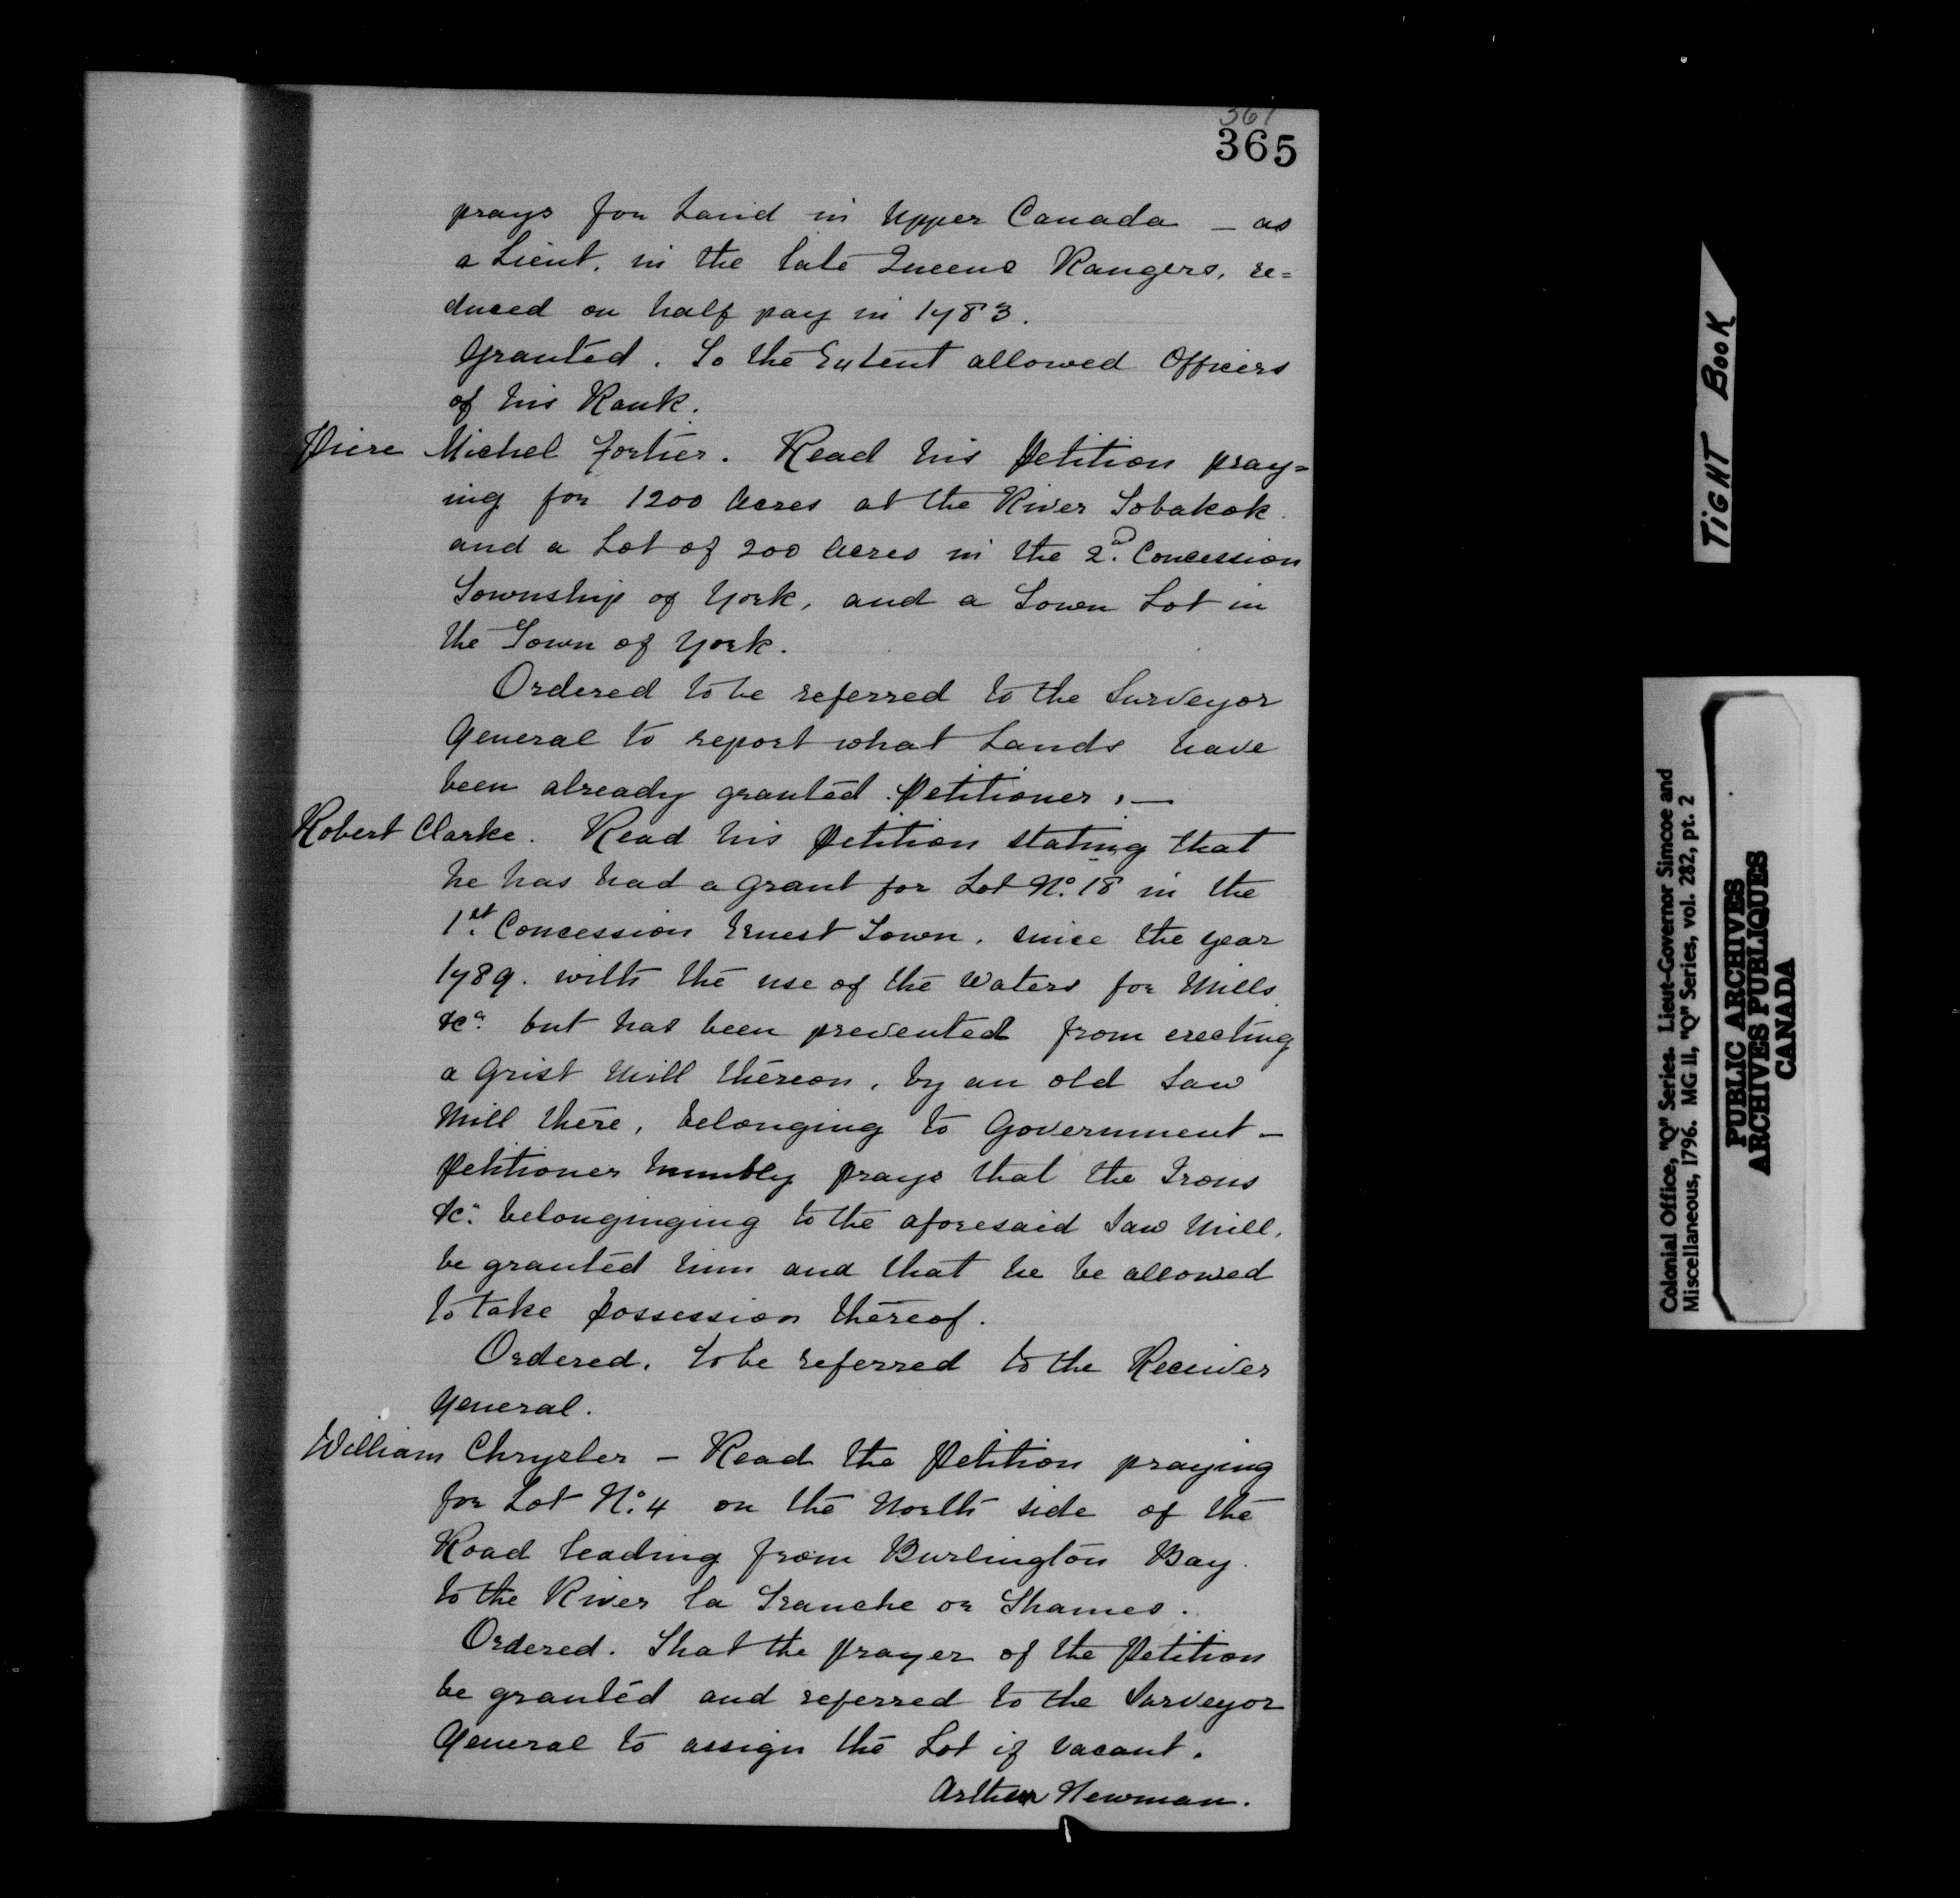 361
365
prays for Land in Upper Canada – as
a Lieut. in the late Queens Rangers, re=
duced on half pay in 1783.
Granted. To the Extent allowed Officers
of his Rank.
Piere Michel Fortier. Read his Petition pray=
ing for 1200 Acres at the River Tobakok
and a Lot of 200 Acres in the 2.d Concession
Township of York, and a Town Lot in
the Town of York.
Ordered to be referred to the Surveyor
General to report what Lands have
been already granted Petitioner. —
Robert Clarke. Read his Petition stating that
he has had a Grant for Lot No. 18 in the
1st. Concession Ernest Town, since the year
1789. with the use of the Waters for Mills
&ca. but has been prevented from erecting
a Grist Mill thereon, by an old Saw
Mill there, belonging to Government –
Petitioner humbly prays that the Irons
&ca. belonginging to the aforesaid Saw Mill,
be granted him and that he be allowed
to take Possession thereof.
Ordered. to be referred to the Receiver
General.
William Chrysler – Read the Petition praying
for Lot No. 4 on the North side of the
Road leading from Burlington Bay.
to the River la Tranche or Thames.
Ordered. That the Prayer of the Petition
be granted and referred to the Surveyor
General to assign the Lot if Vacant.
Arthur Newman.
TIGHT BOOK
Colonial Office, "Q" Series. Lieut-Governor Simcoe and
Miscellaneous, 1796. MG 11, "Q" Series, vol. 282, pt. 2
PUBLIC ARCHIVES
ARCHIVES PUBLIQUES
CANADA